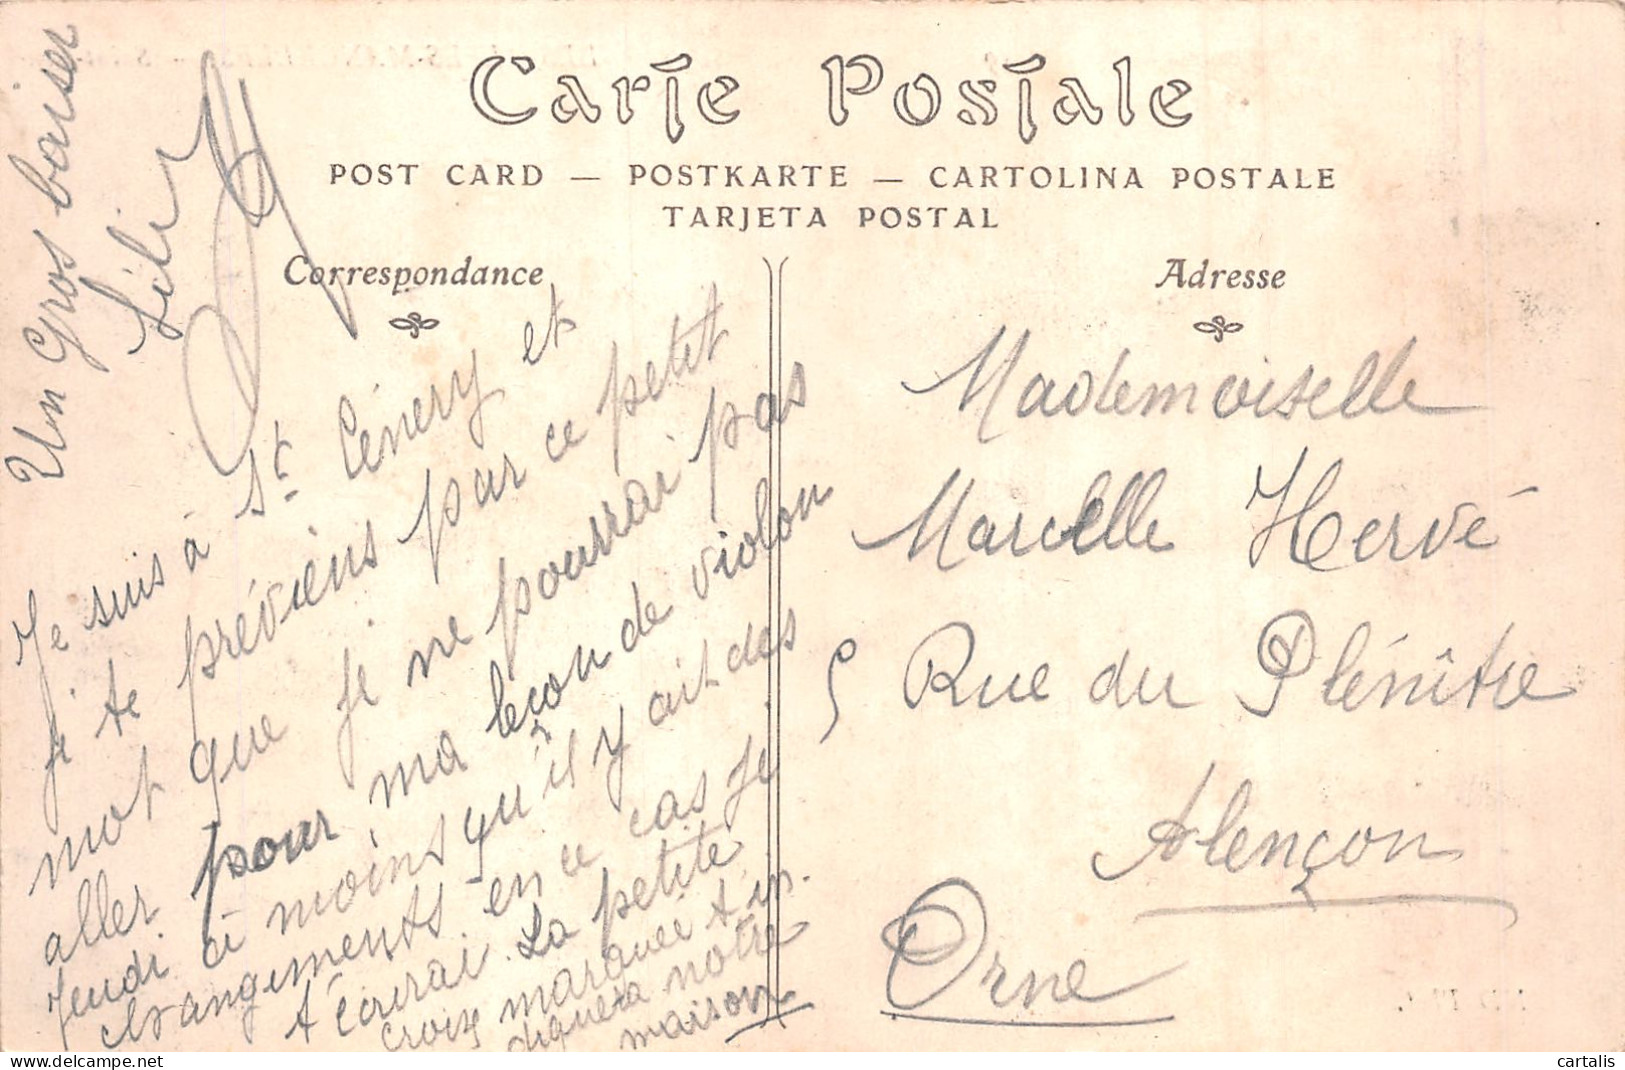 Carte Postale
POST CARD — POSTKARTE — CARTOLINA POSTALE
TARJETA POSTAL
Correspondance
Adresse
Je suis à St Cénery et
je te préviens par ce petit
mot que je ne pourrai pas
aller pour ma leçon de violon
Jeudi à moins qu'il y ait des
changements en ce cas je
t'écrirai. La petite
croix marquée t'in-
diquera notre
maison
Un Gros baiser
Mademoiselle
Marcelle Hervé
5 Rue du Plénître
Alençon
Orne
cartalis